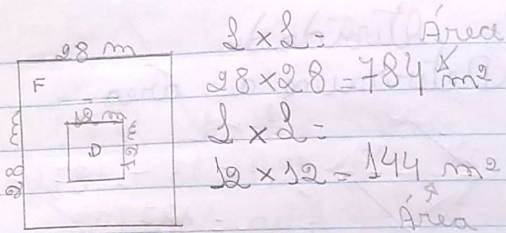 28 m
F
12 m
D
12 m
28 m
L × L = Área
28 × 28 = 784 m²
L × L =
12 × 12 = 144 m²
Área